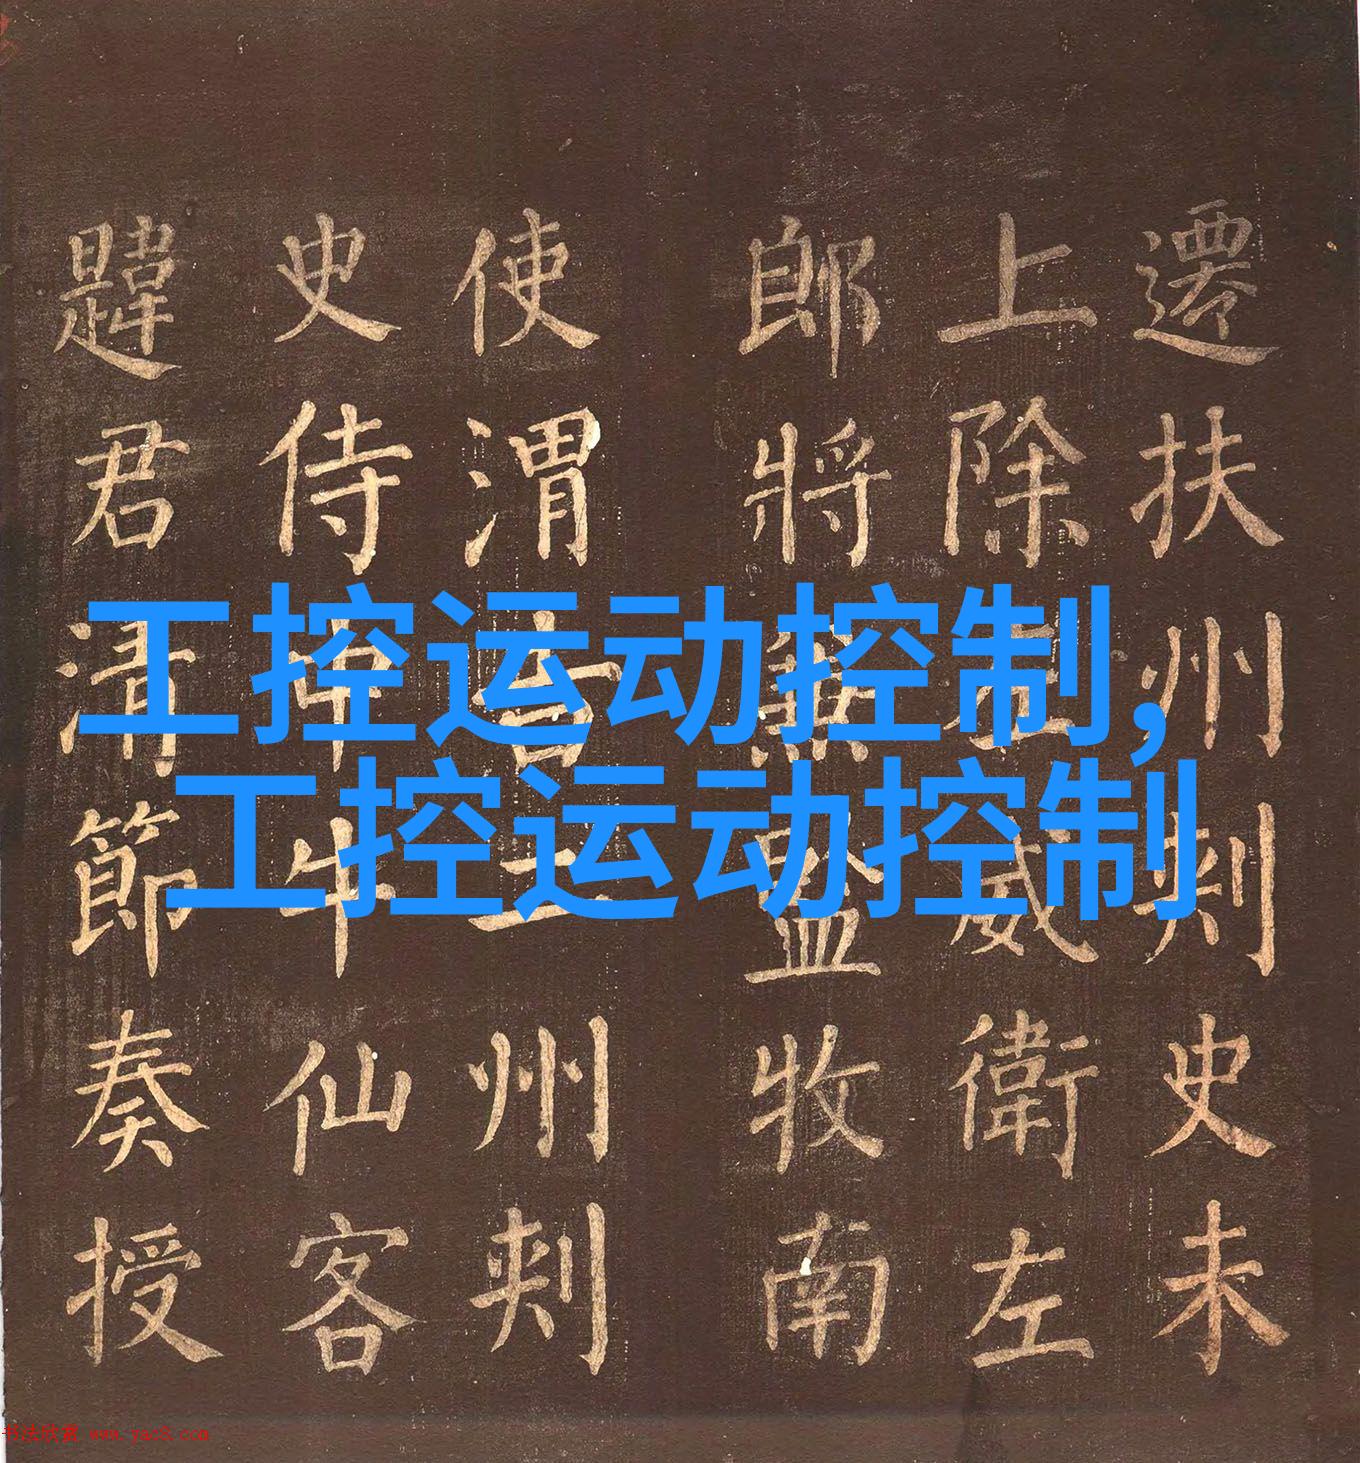 遷扶州刾史未
上除左威衛左
郎將兼監牧南
使渭吉二州刾
史侍中牛仙客
韙君清節奏授
工控运动控制,
工控运动控制
书法欣赏 www.yac8.com